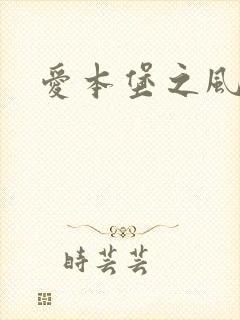 愛本堡之風
時芸芸